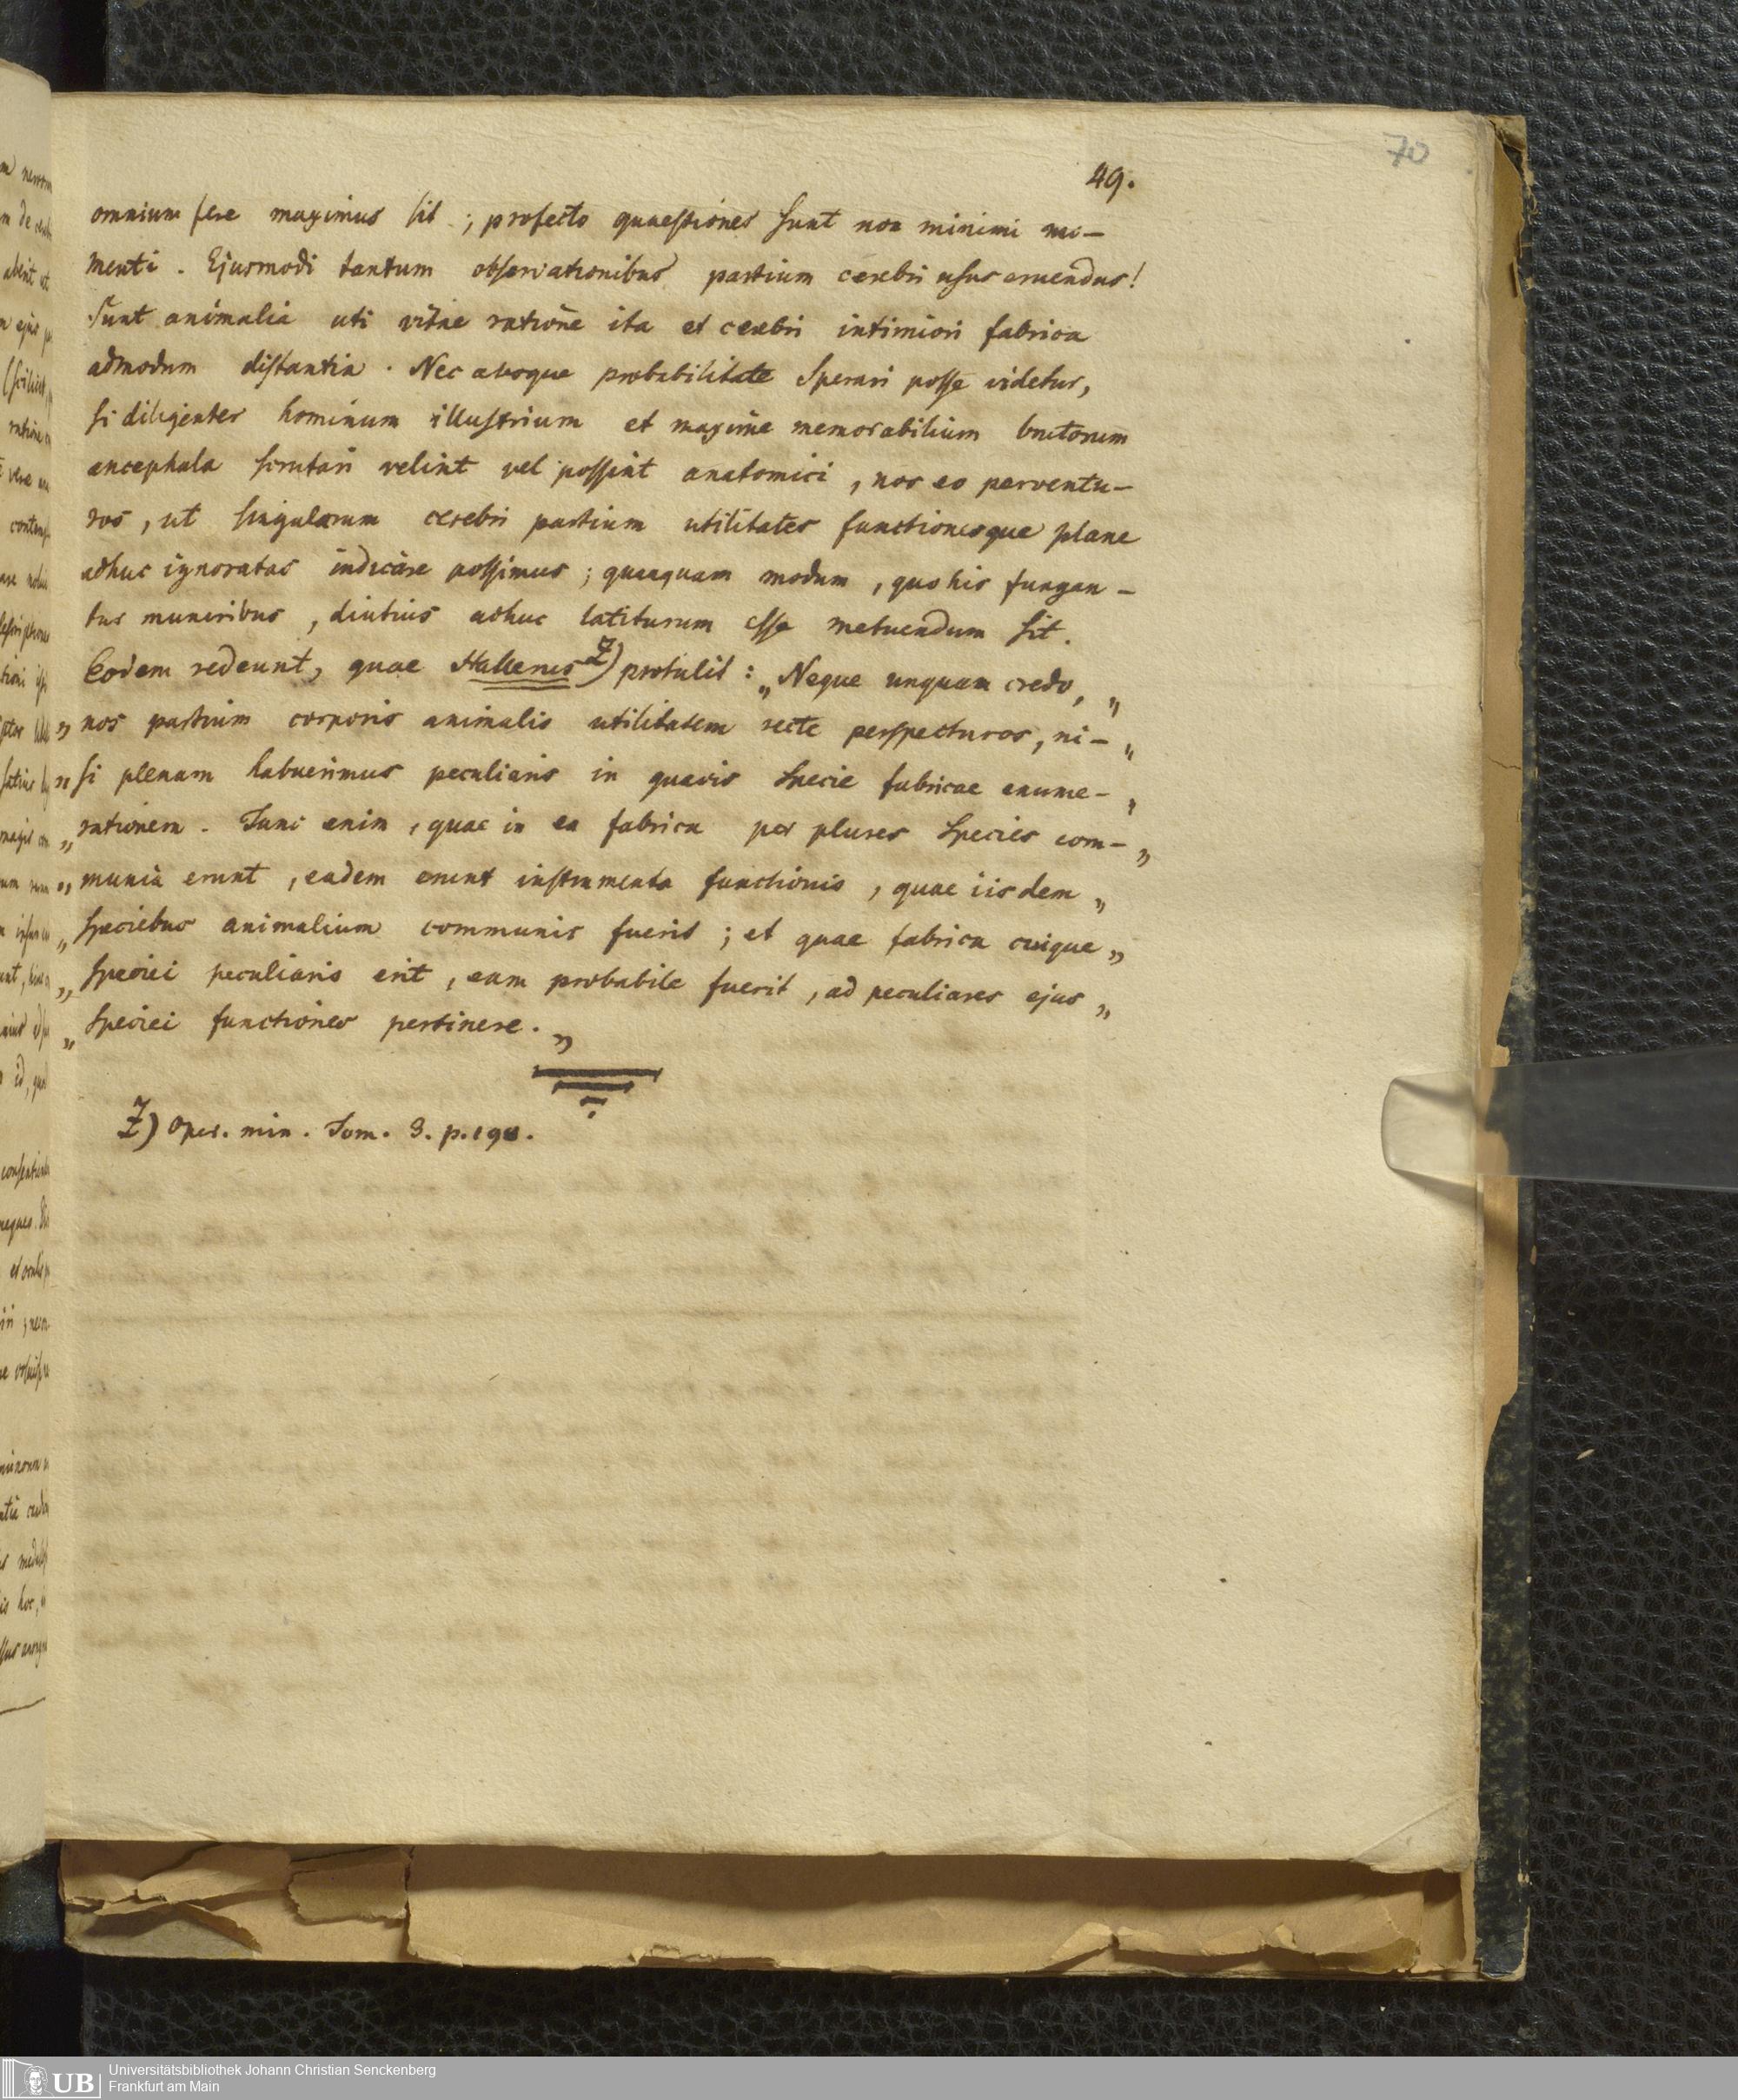 70
49.
omnium fere maximus sit ; profecto quaestiones sunt non minimi mo-
menti . Ejusmodi tantum observationibus partium cerebri usus eruendus!
Sunt animalia uti vitae ratione ita et cerebri intimiori fabrica
admodum distantia . Nec absque probabilitate sperari posse videtur,
si diligenter hominum illustrium et maxime memorabilium brutorum
encephala scrutari velint vel possint anatomici , nos eo perventu-
ros , ut singularum cerebri partium utilitates functionesque plane
adhuc ignoratas indicare possimus ; quanquam modum , quo his fungan-
tur muneribus , diutius adhuc latiturum esse metuendum sit.
Eodem redeunt, quae Hallerus Z) protulit : „ Neque unquam credo, „
„ nos partium corporis animalis utilitatem recte perspecturos, ni- „
„ si plenam habuerimus peculiaris in quavis specie fabricae enume- „
„ rationem . Tunc enim , quae in ea fabrica per plures species com- „
„ munia erunt , eadem erunt instrumenta functionis , quae iisdem „
„ speciebus animalium communis fuerit ; et quae fabrica cuique „
„ speciei peculiaris erit , eam probabile fuerit , ad peculiares ejus „
„ speciei functiones pertinere . „
Z) Oper. min . Tom . 3. p.
Universitätsbibliothek Johann Christian Senckenberg
Frankfurt am Main
UB